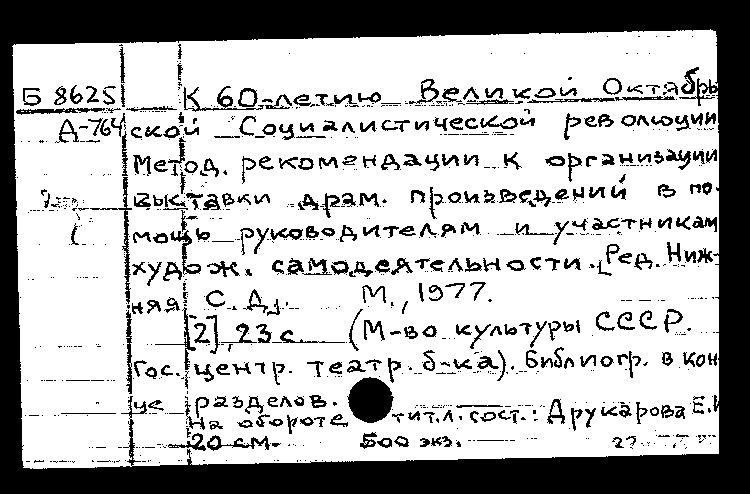 Б 8625 К 60-летию Великой Октябрь
Д-764 ской Социалистической революции
Метод. рекомендации к организации
выставки драм. произведений в по-
мощь руководителям и участникам
худож. самодеятельности. [Ред. Ниж-
няя С. Д.]. М., 1977.
[2], 23 с. (М-во культуры СССР.
Гос. центр. театр. б-ка). Библиогр. в кон
це разделов.
На обороте тит.л. сост.: Друкарова Е.И
20 см. 500 экз.